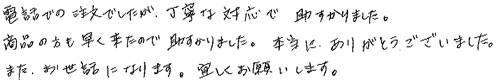 電話での注文でしたが、丁寧な対応で 助すかりました。
商品の方も早く来たので助すかりました。本当に、ありがとうございました。
また、お世話になります。宜しくお願いします。